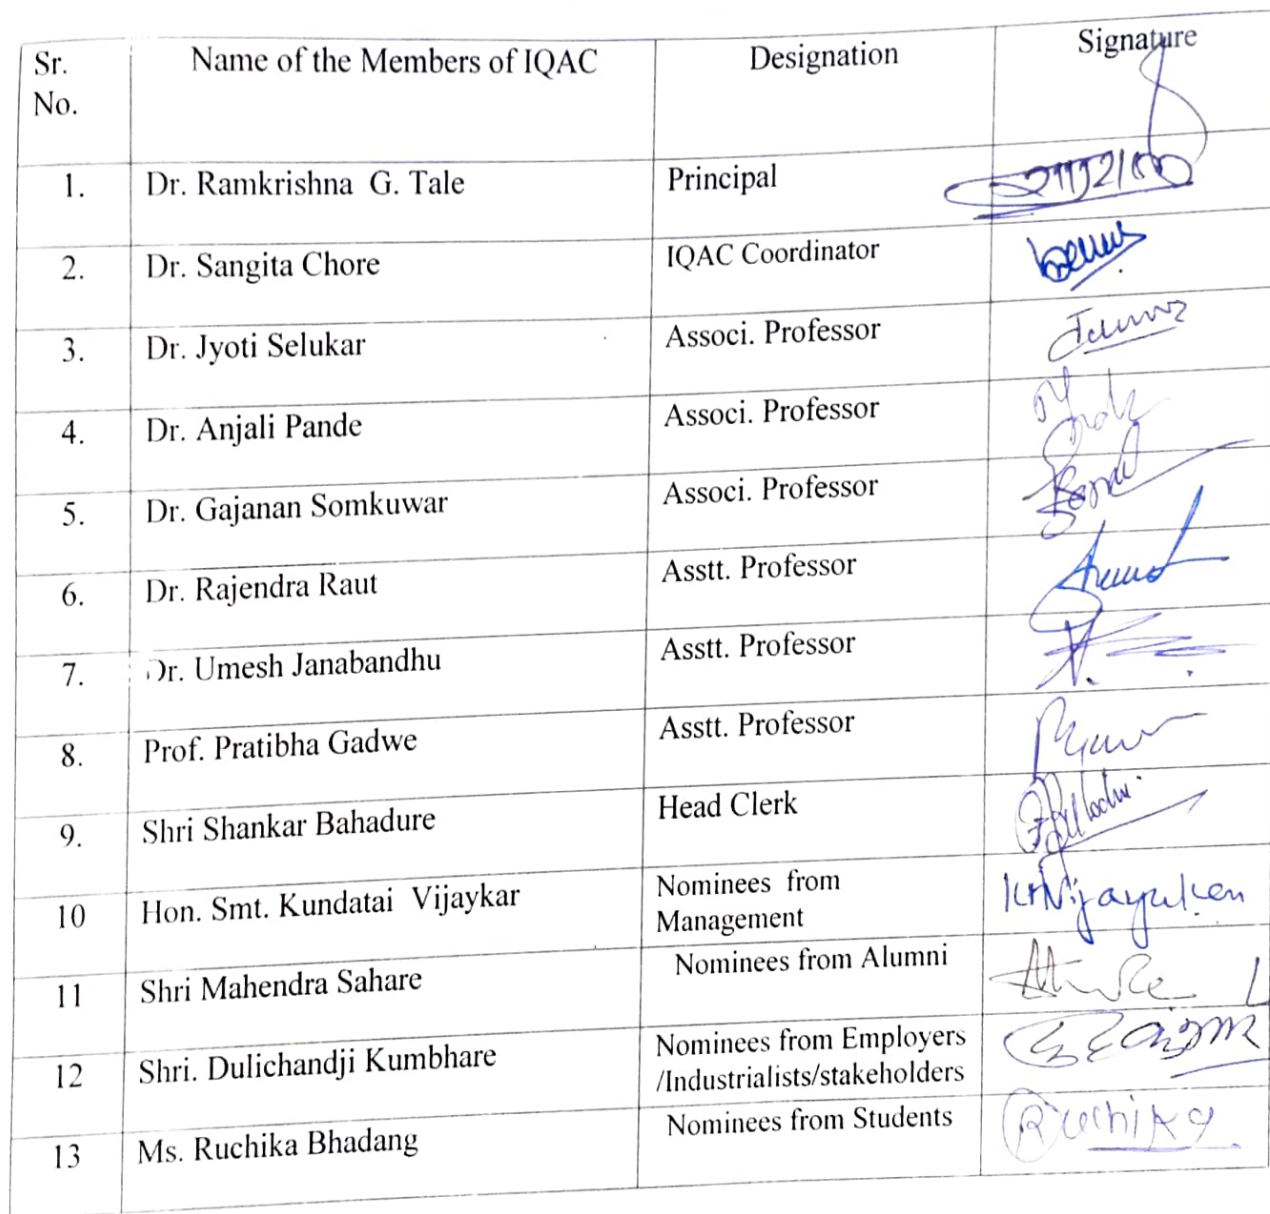 Sr. No. Name of the Members of IQAC Designation Signature
1. Dr. Ramkrishna G. Tale Principal
2. Dr. Sangita Chore IQAC Coordinator
3. Dr. Jyoti Selukar Associ. Professor
4. Dr. Anjali Pande Associ. Professor
5. Dr. Gajanan Somkuwar Associ. Professor
6. Dr. Rajendra Raut Asstt. Professor
7. Dr. Umesh Janabandhu Asstt. Professor
8. Prof. Pratibha Gadwe Asstt. Professor
9. Shri Shankar Bahadure Head Clerk
10 Hon. Smt. Kundatai Vijaykar Nominees from
Management
11 Shri Mahendra Sahare Nominees from Alumni
12 Shri. Dulichandji Kumbhare Nominees from Employers
/Industrialists/stakeholders
13 Ms. Ruchika Bhadang Nominees from Students Ruchika